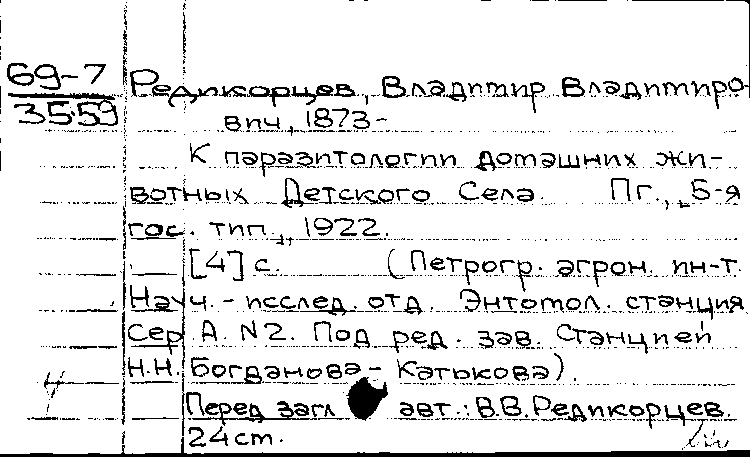 69-7
3559
Редикорцев, Владимир Владимиро-
вич, 1873-
К паразитологии домашних жи-
вотных Детского Села. Пг., 5-я
гос. тип., 1922.
[4] с. (Петрогр. агрон. ин-т.
Науч.-исслед. отд. Энтомол. станция
Сер. А. N2. Под ред. зав. Станцией
Н.Н. Богданова-Катькова).
Перед загл авт.: В.В.Редикорцев.
24см.